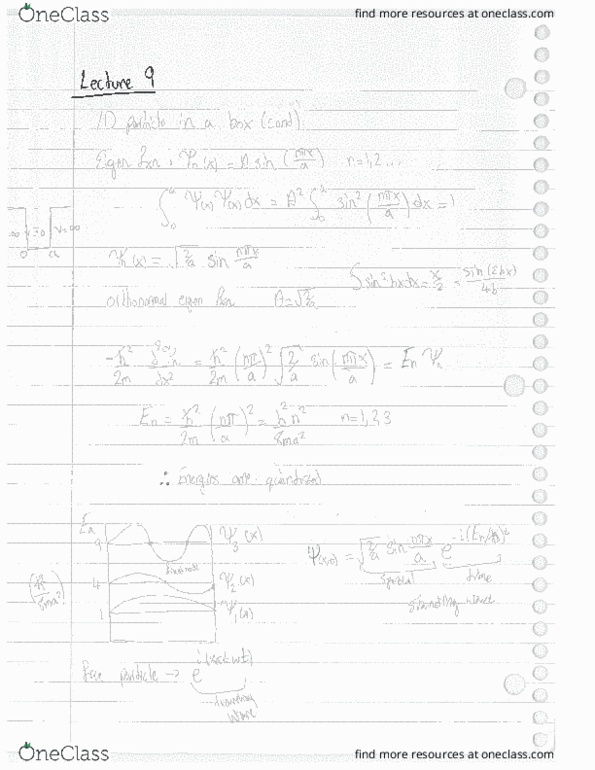 OneClass
find more resources at oneclass.com
Lecture 9
1D particle in a box (cont)
Eigen fxn : Ψn(x) = A sin (nπx/a) n=1,2...
∫₀ᵃ Ψ(x) Ψ(x) dx = A² ∫₀ᵃ sin² (nπx/a) dx = 1
∞ v=0 v=∞
0 a
Ψ(x) = √(2/a) sin nπx/a
∫ sin² bx dx = x/2 = sin(2bx)/4b
orthonormal eigen fxn A = √(2/a)
-ħ²/2m d²Ψn/dx² = ħ²/2m (nπ/a)² √(2/a) sin (nπx/a) = En Ψn
En = ħ²/2m (nπ/a)² = h²n²/8ma² n=1,2,3
∴ Energies are quantized
9 Ψ₃(x)
4 Ψ₂(x)
1 Ψ₁(x)
= √(2/a) sin nπx/a e^-i(En/ħ)t
spatial time
standing wave
free particle → e^i(kx-wt)
travelling
wave
OneClass
find more resources at oneclass.com